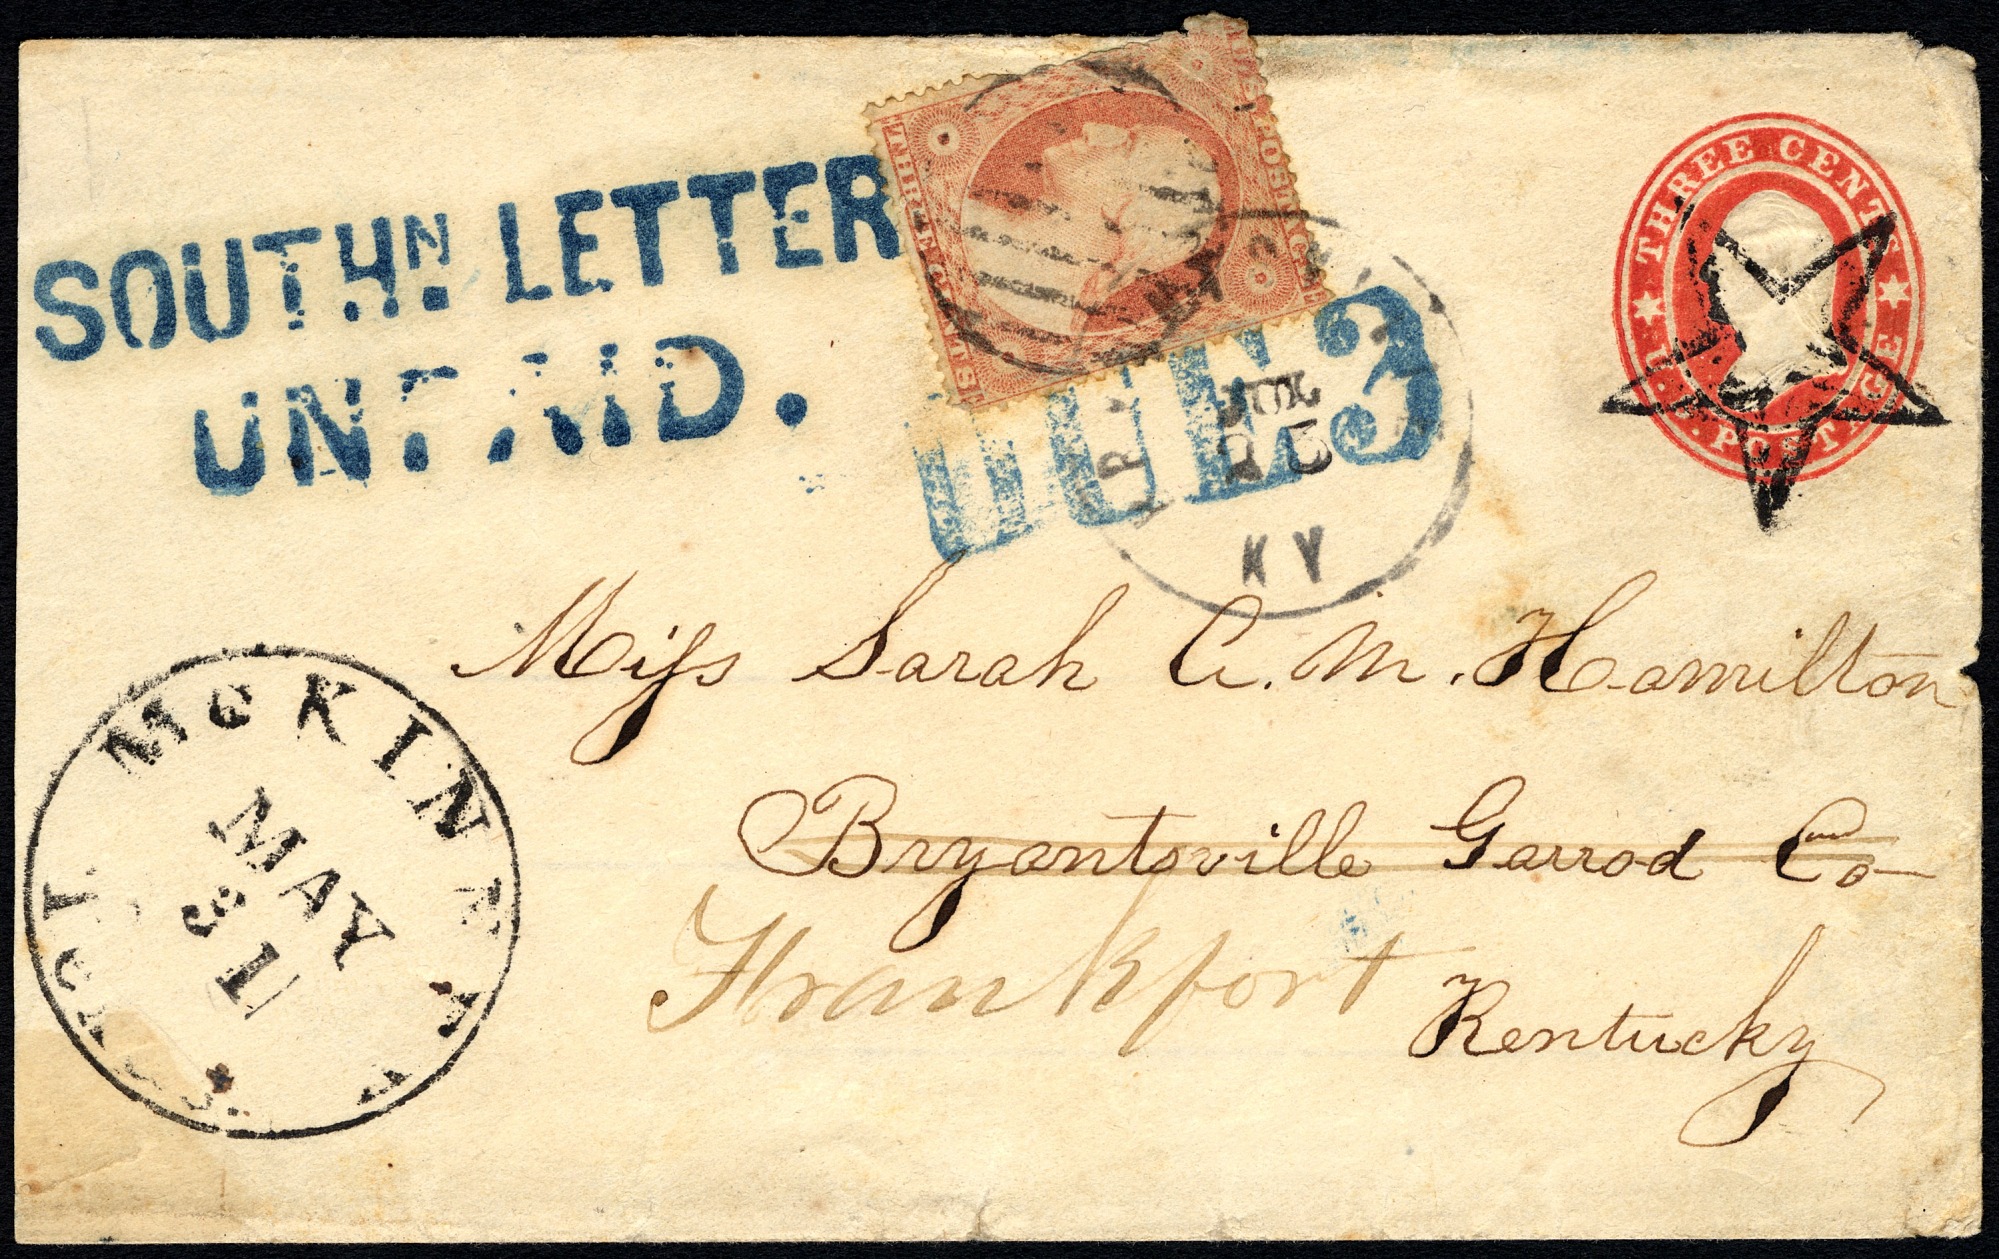 SOUTHN. LETTER
UNPAID.
THREE CENTS
DUE 3
JUL
KY
THREE CENTS
U.S. POSTAGE
McKINNEY
MAY
31
Miss Sarah C. M. Hamilton
Bryantsville Garrod Co
Frankfort
Kentucky